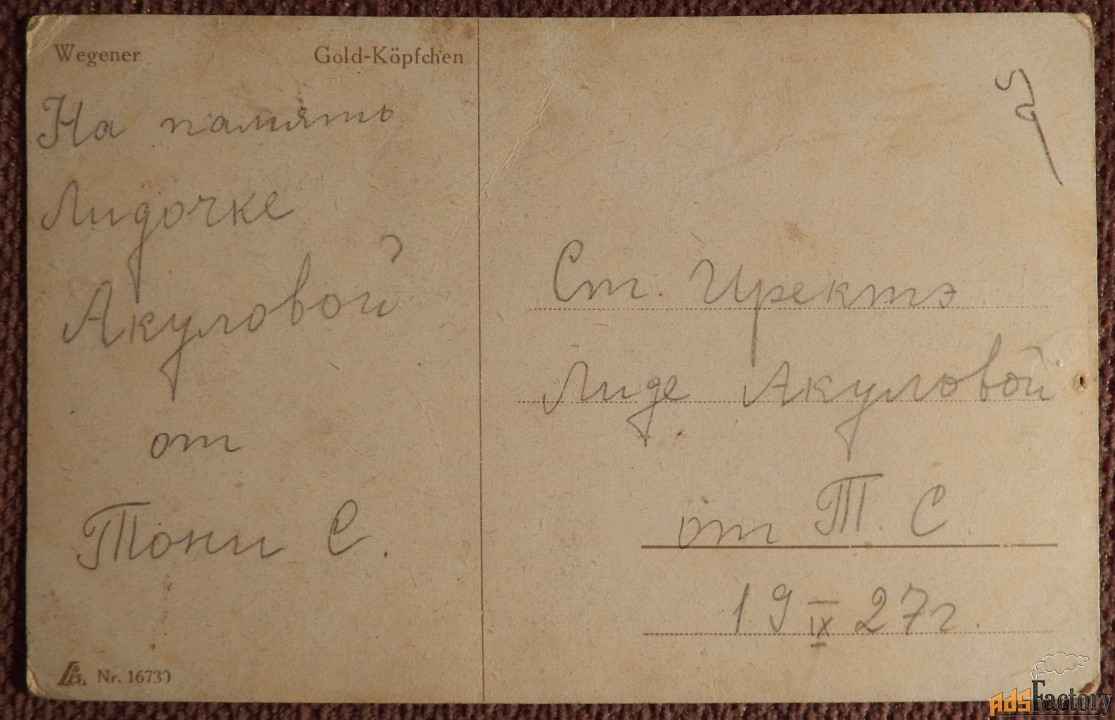 Wegener Gold-Köpfchen
На память
Лидочке
Акуловой
от
Тони С.
Nr. 16730
Ст. Иректэ
Лиде Акуловой
от Т. С
19 IX 27 г.
AdsFactory